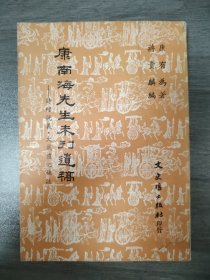 康有為著
蔣貴麟編
文史哲出版社印行
康南海先生未刊遺稿